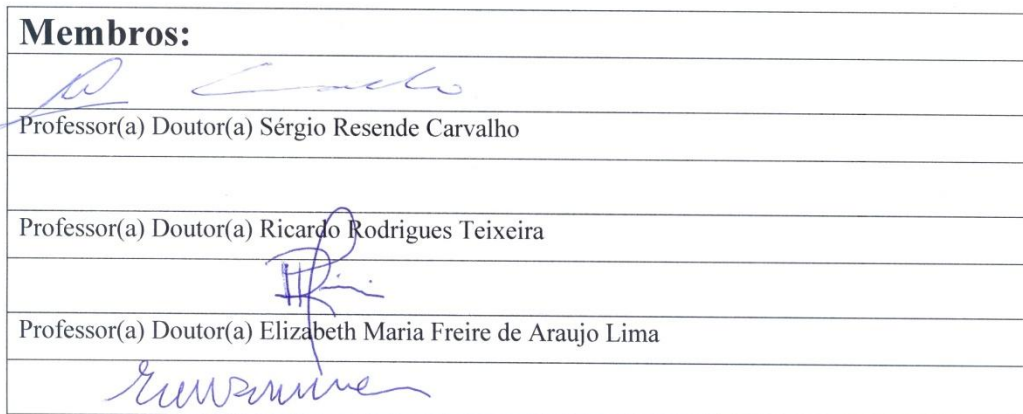 Membros:
Professor(a) Doutor(a) Sérgio Resende Carvalho
Professor(a) Doutor(a) Ricardo Rodrigues Teixeira
Professor(a) Doutor(a) Elizabeth Maria Freire de Araujo Lima